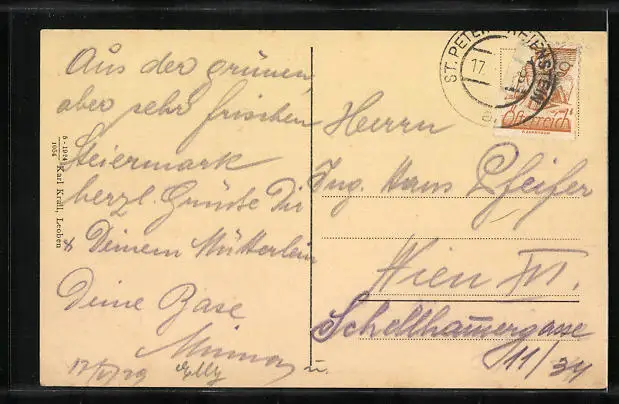 Aus der grünen,
aber sehr frischen
Steiermark
herzl. Grüße Dir
& Deinem Mütterlein
Deine Base
Minna
Elly
u.
5 - 1924
1064
Karl Krall, Leoben
ST. PETER-FREIENSTEIN
17.
a
Österreich
Herrn
Ing. Hans Pfeifer
Wien XVI.
Schellhamergasse
11/34